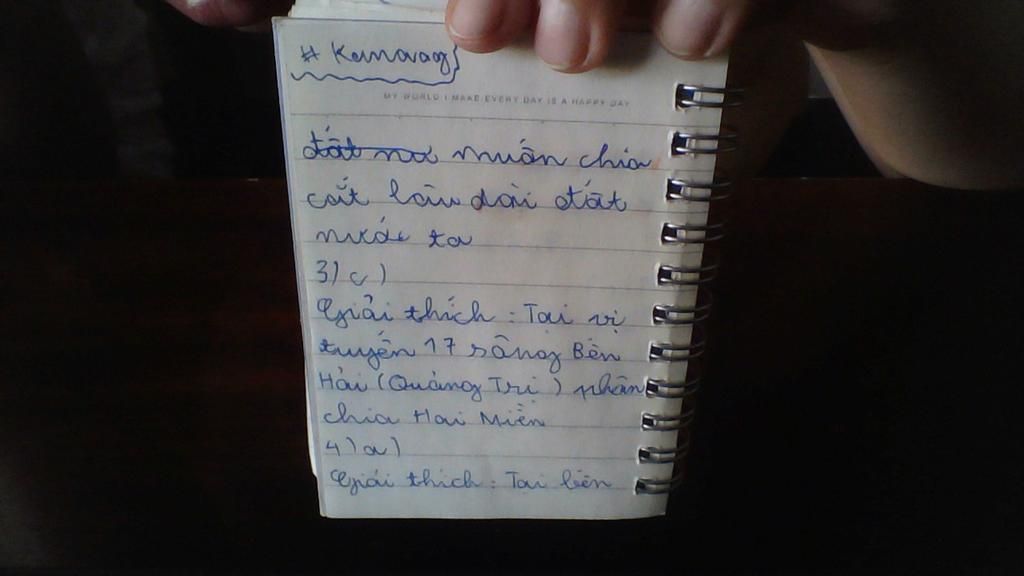 # Kamavag
MY WORLD I MAKE EVERY DAY IS A HAPPY DAY
muốn chia
cắt lâu dài đất
nước ta
3) c)
Giải thích : Tại vị
tuyến 17 sông Bến
Hải (Quảng Trị) phân
chia Hai Miền
4) a)
Giải thích : Tại bến